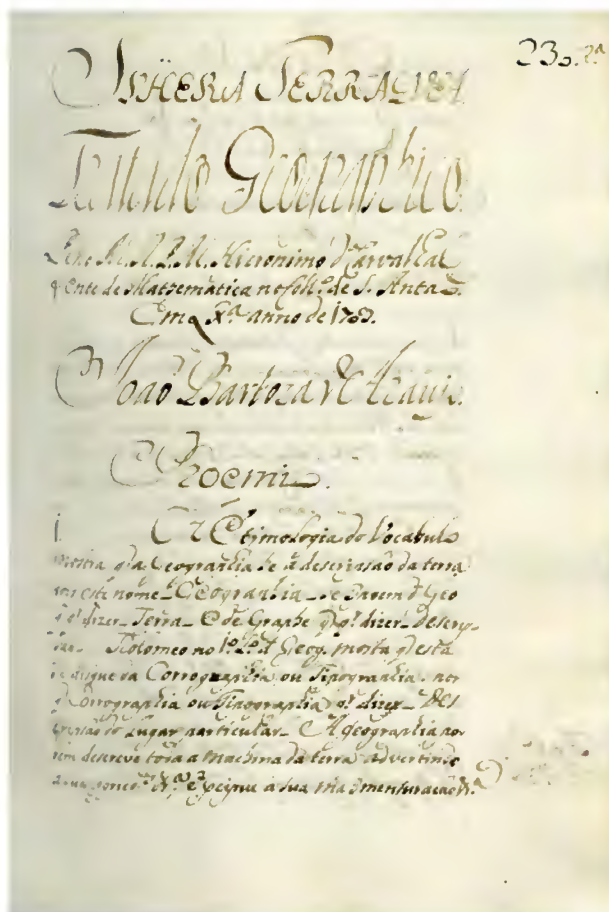 230. 2ª
SPHERA TERRAQUEA
Tratado Geographico
Pello M. R. P. M. Hieronimo d Carvalhal
Lente de Mathematica no Coll.º de S. Antaõ
Em anno de
Joaõ Barboza de Araujo.
Proemio.
1. A Etimologia do Vocabulo
mostra q̃ a Geographia he a descripsaõ da terra
este nome Geographia se Geo
q̃ q.r dizer Terra e de Graphe q̃ q.r dizer Descrip-
saõ Ptolomeo no Geog. mostra q̃ esta
se distigue da Corographia ou Tipographia. por
q̃ Corrographia ou Tipographia q.r dizer Des
cripsaõ do lugar particular. A geographia po-
rem descreve toda a machina da terra advertindo
a sua a sua